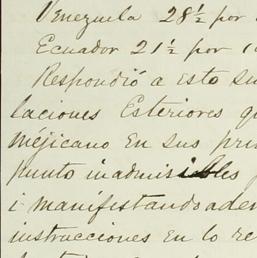 Venezuela 28½ por
Ecuador 21½ por
Respondió a esto su
laciones Esteriores
méjicano en sus
punto inadmisibles
i manifestando
instrucciones en lo